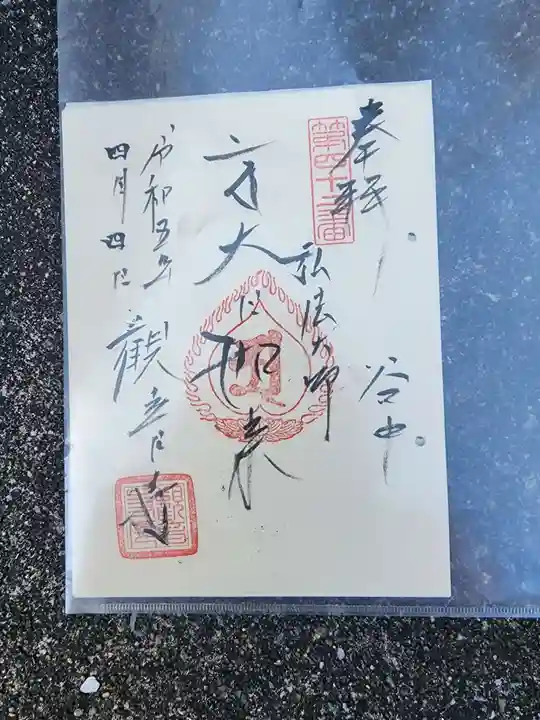 奉拝
谷中
第四十二番
弘法大師
大日如来
令和五年
四月四日
観音寺